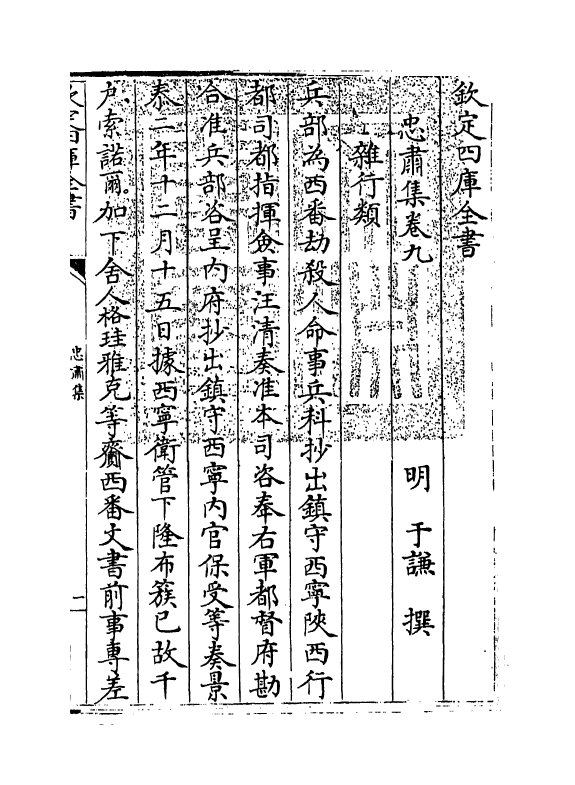 欽定四庫全書
忠肅集卷九
明 于謙 撰
雜行類
兵部為西番劫殺人命事兵科抄出鎮守西寧陜西行
都司都指揮僉事汪清奏准本司咨奉右軍都督府勘
合准兵部咨呈内府抄出鎮守西寧内官保受等奏景
泰二年十二月十五日據西寧衛管下隆布簇已故千
户索諾爾加下舍人格珪雅克等齎西番文書前事專差
忠肅集